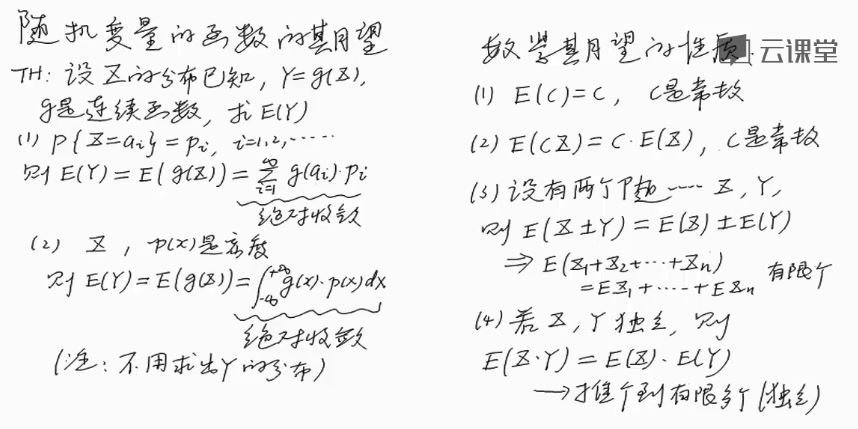 随机变量的函数的其月望
TH: 设X的分布已知, Y=g(X),
g是连续函数, 求E(Y)
(1) P{X=ai}=pi, i=1,2,……
则 E(Y)=E(g(X))=∑_{i=1}^{∞} g(ai)·pi
绝对收敛
(2) X, p(x)是密度
则 E(Y)=E(g(X))=∫_{-∞}^{+∞} g(x)·p(x)dx
绝对收敛
(注: 不用求出Y的分布)
数学其月望的性质
云课堂
(1) E(C)=C, C是常数
(2) E(CX)=C·E(X), C是常数
(3) 设有两个随…… X, Y,
则 E(X±Y)=E(X)±E(Y)
⇒ E(X1+X2+…+Xn)
=EX1+……+EXn 有限个
(4) 若X, Y独立, 则
E(X·Y)=E(X)·E(Y)
→推个到有限多个(独立)